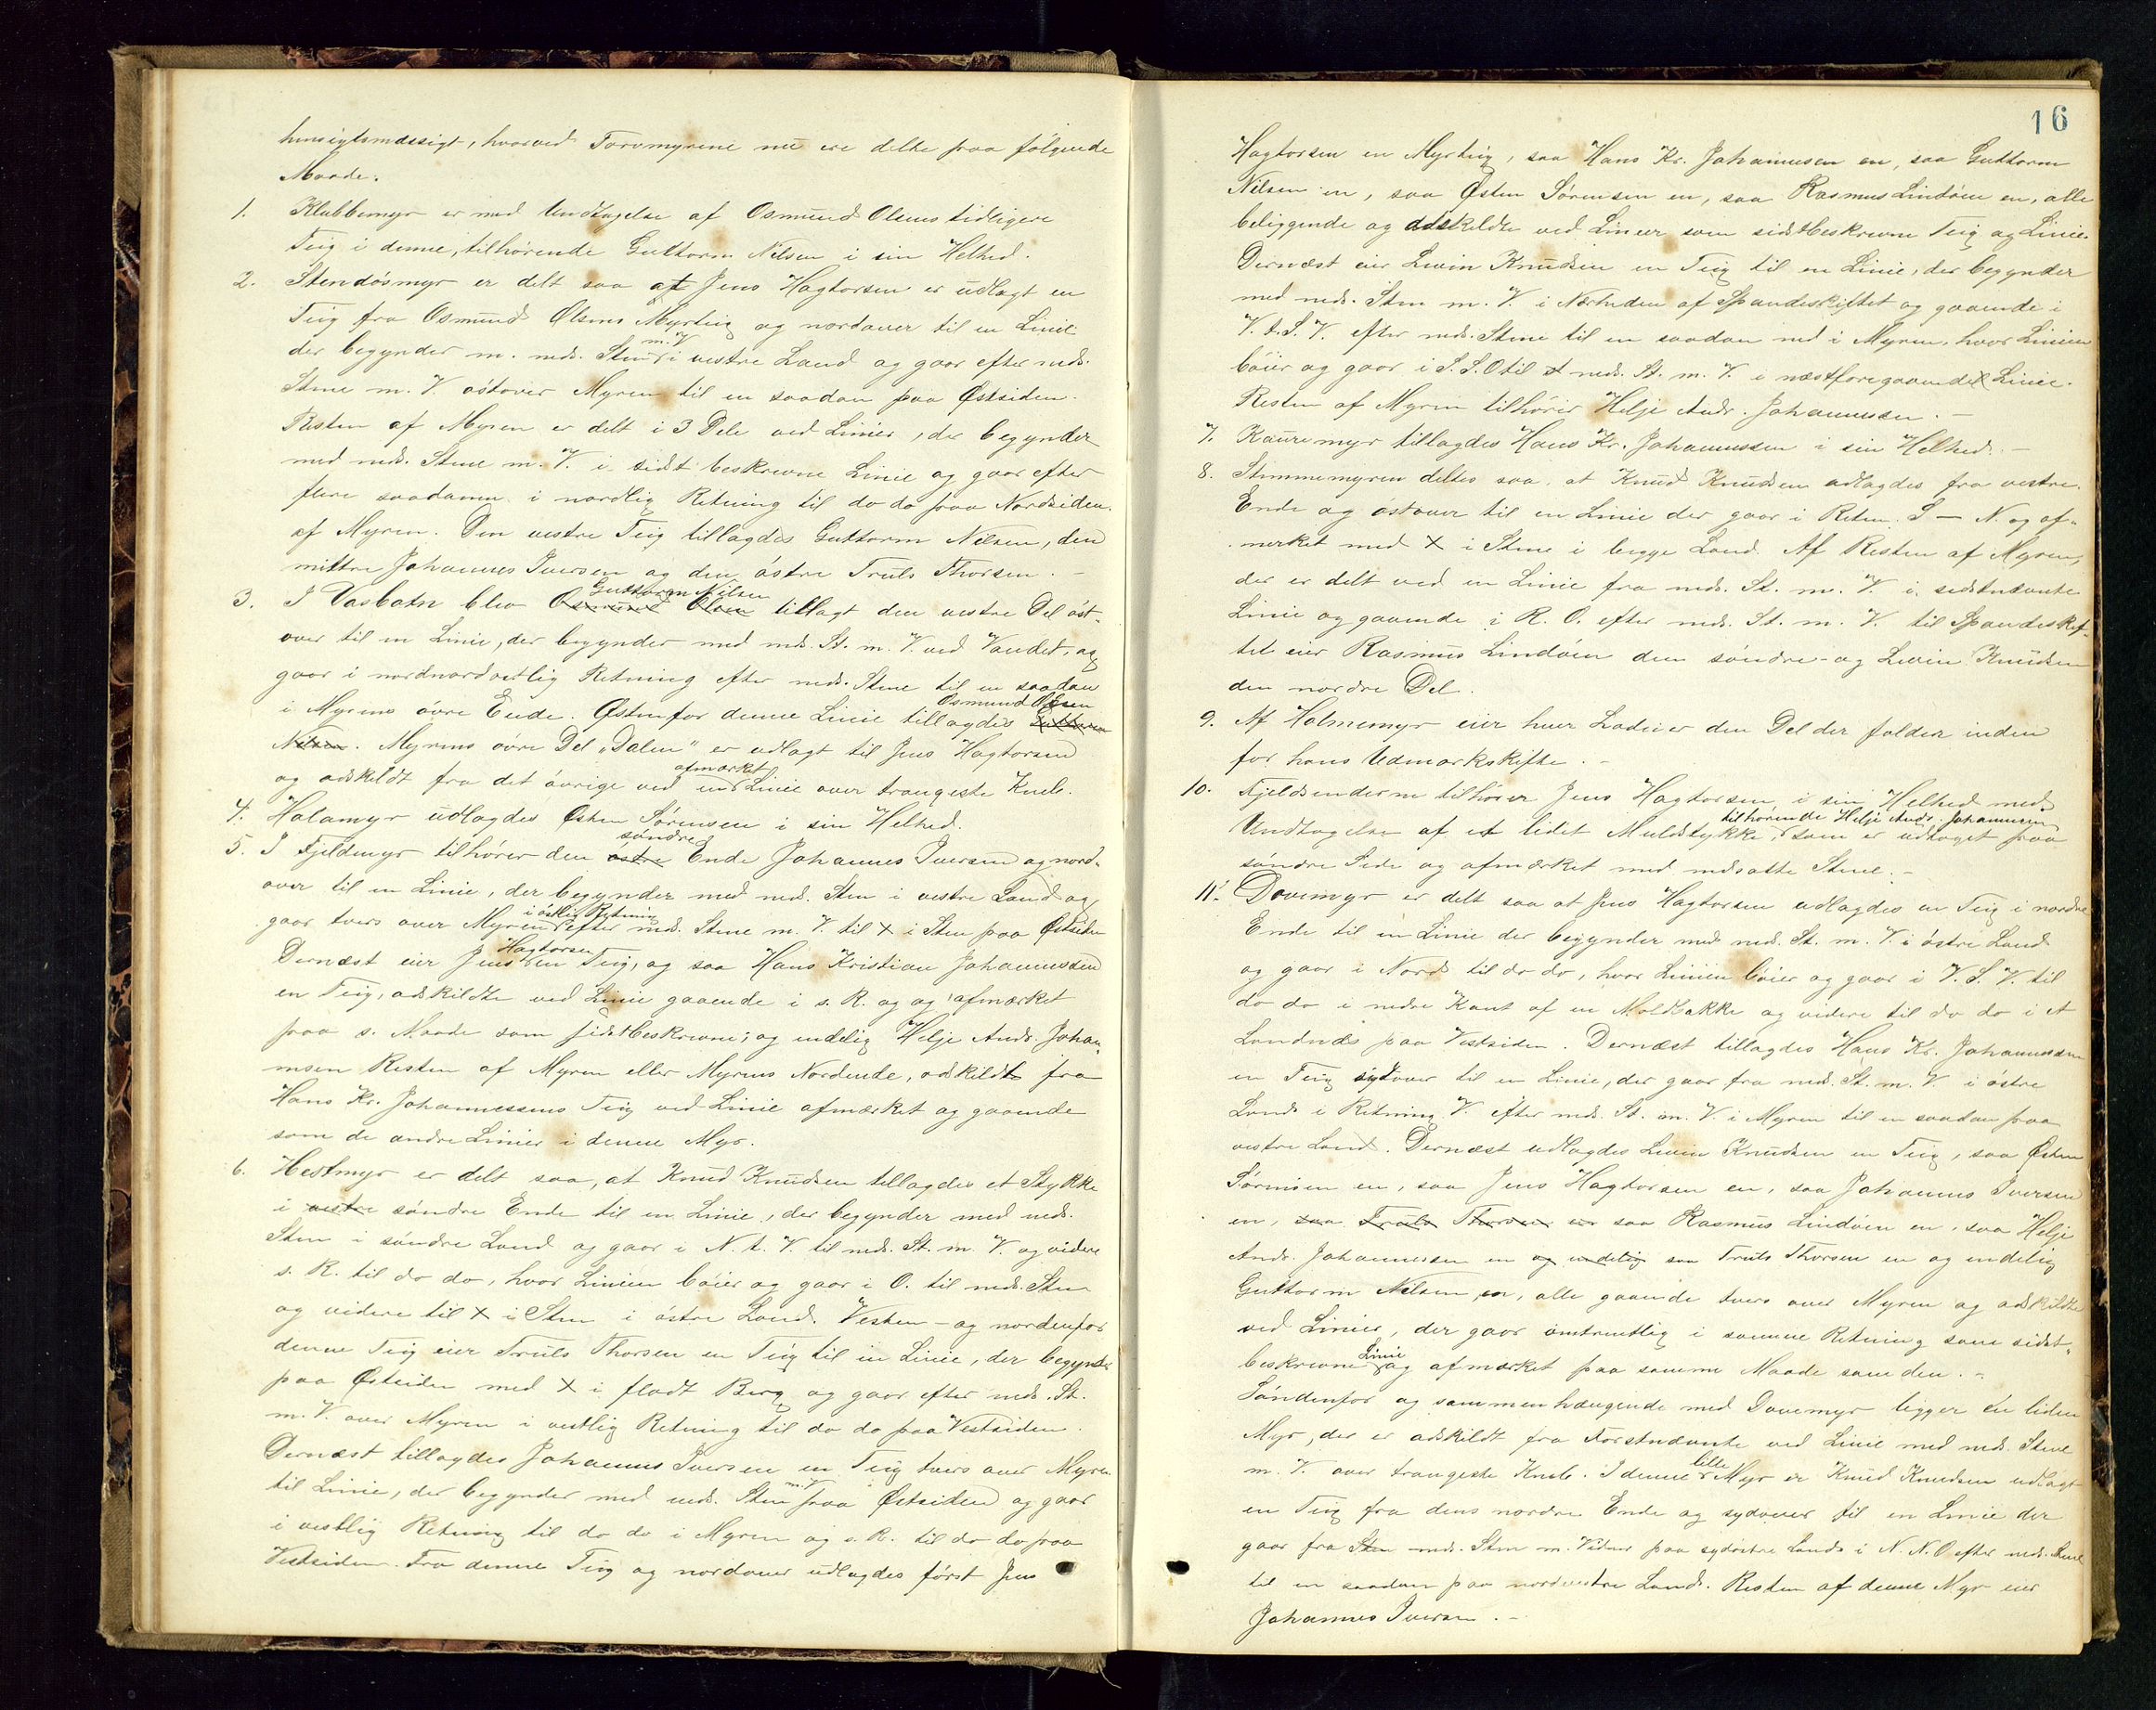 hensigtsmæssigt, hvorved Torvmyrene nu ere delte paa følgende
Maade.
1. Klubbemyr er med Undtagelse af Osmund Olsens tidligere
Teig i denne, tilhørende Guttorm Nilsen i sin Helhed.
2. Stendósmyr er delt saa at Jens Hagtorsen er udlagt en
Teig fra Osmund Olsens Myrteig og nordover til en Linie
der begynder m. neds. Sten m. V. i vestre Land og gaar efter neds.
Stene m. V. óstover Myren til en saadan paa Østsiden.
Resten af Myren er delt i 3 Dele ved Linier, der begynder
med neds. Stene m. V. i sidst beskrevne Linie og gaar efter
flere saadanne i nordlig Retning til do do paa Nordsiden
af Myren. Den vestre Teig tillagdes Guttorm Nilsen, den
mittre Johannes Iversen og den óstre Truls Thorsen. -
3. I Vasbotn blev Osmund Olsen Guttorm Nilsen tillagt den vestre Del óst-
over til en Linie, der begynder med neds. St. m. V. ved Vandet, og
gaar i nordnordvestlig Retning efter neds. Stene til en saadan
i Myrens óvre Ende. Østenfor denne Linie tillagdes Guttorm Osmund Olsen
Nilsen. Myrens óvre Del "Dalen" er udlagt til Jens Hagtorsen
og adskildt fra det óvrige ved en afmærket Linie over trangeste Kneb.
4. Halamyr udlagdes Østen Sørensen i sin Helhed.
5. I Fjeldmyr tilhører den óstre sóndre Ende Johannes Iversen og nord-
over til en Linie, der begynder med neds. Sten i vestre Land og
gaar tvers over Myren i óstlig Retning efter neds. Stene m. V. til X i Sten paa Østsiden
Dernæst eier Jens Hagtorsen en Teig, og saa Hans Kristian Johannessen
en Teig, adskildte ved Linie gaaende i s. R. og og afmærket
paa s. Maade som sidstbeskrevne; og endelig Helje Andr. Johan-
nesen Resten af Myren eller Myrens Nordende, adskildt fra
Hans Kr. Johannessens Teig ved Linie afmærket og gaaende
som de andre Linier i denne Myr.
6. Hestmyr er delt saa, at Knud Knudsen tillagdes et Stykke
i vestre sóndre Ende til en Linie, der begynder med neds.
Sten i sóndre Land og gaar i N. t. V. til neds. St. m. V. og videre
s. R. til do do, hvor Linien bóier og gaar i O. til neds. Sten
og videre til X i Sten i óstre Land. Vesten- og nordenfor
denne Teig eier Truls Thorsen en Teig til en Linie, der begynder
paa Østsiden med X i fladt Berg og gaar efter neds. St.
m. V. over Myren i vestlig Retning til do do paa Vestsiden.
Dernæst tillagdes Johannes Iversen en Teig tvers over Myren
til Linie, der begynder med neds. Sten m. V. paa Østsiden og gaar
i vestlig Retning til do do i Myren og s. R. til do do paa
Vestsiden. Fra denne Teig og nordover udlagdes fórst Jens
16
Hagtorsen en Myrteig, saa Hans Kr. Johannesen en, saa Guttorm
Nilsen en, saa Østen Sørensen en, saa Rasmus Lindóen en, alle
beliggende og adskildte ved Linier som sidstbeskrevne Teig og Linie.
Dernæst eier Levin Knudsen en Teig til en Linie, der begynder
med neds. Sten m. V. i Nærheden af Spandeskiftet og gaaende i
V. t. S. V. efter neds. Stene til en saadan ned i Myren, hvor Linien
bóier og gaar i S. S. O til neds. St. m. V. i næstforegaaende Linie.
Resten af Myren tilhører Helje Andr. Johannessen. -
7. Kauremyr tillagdes Hans Kr. Johannessen i sin Helhed. -
8. Stemmemyren deltes saa, at Knud Knudsen udlagdes fra vestre
Ende og óstover til en Linie der gaar i Retn. S - N. og af-
mærket med X i Stene i begge Land. Af Resten af Myren,
der er delt ved en Linie fra neds. St. m. V. i sidstnævnte
Linie og gaaende i R. O. efter neds. St. m. V. til Spandeskif-
tet eier Rasmus Lindóen den sóndre- og Levin Knudsen
den nordre Del.
9. Af Holmemyr eier hver Lodeier den Del der falder inden
for hans Udmarkskifte. -
10. Fjeldsenderne tilhører Jens Hagtorsen i sin Helhed med
Undtagelse af et lidet Muldstykke, tilhørende Helje Andr. Johannesen som er udtaget paa
sóndre Side og afmærket med nedsatte Stene. -
11. Dovemyr er delt saa at Jens Hagtorsen udlagdes en Teig i nordre
Ende til en Linie der begynder med neds. St. m. V. i óstre Land
og gaar i Nord til do do, hvor Linien bóier og gaar i V. S. V. til
do do i nedre Kant af en Moldbakke og videre til do do i et
Landnæs paa Vestsiden. Dernæst tillagdes Hans Kr. Johannessen
en Teig sydover til en Linie, der gaar fra neds. St. m. V i óstre
Land i Retning V. efter neds. St. m. V. i Myren til en saadan paa
vestre Land. Dernæst udlagdes Levin Knudsen en Teig, saa Østen
Sørensen en, saa Jens Hagtorsen en, saa Johannes Iversen
en, saa Truls Thorsen en saa Rasmus Lindóen en, saa Helje
Andr. Johannessen en og endelig saa Truls Thorsen en og endelig
Guttorm Nilsen en, alle gaaende tvers over Myren og adskildte
ved Linier, der gaar omtrentlig i samme Retning som sidst-
beskrevne Linie og afmærket paa samme Maade som den. -
Sóndenfor og sammenhængende med Dovemyr ligger en liden
Myr, der er adskildt fra Forstnævnte ved Linie med neds. Stene
m. V. over trangeste Kneb. I denne lille Myr er Knud Knudsen udlagt
en Teig fra dens nordre Ende og sydover til en Linie der
gaar fra Sten neds. Sten m. Vidner paa sydóstre Land i N. N. O efter neds. Stene
til en saadan paa nordvestre Land. Resten af denne Myr eier
Johannes Iversen. -